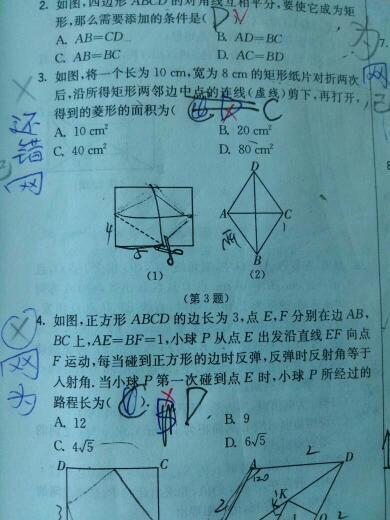 2. 如图,四边形 ABCD 的对角线互相平分,要使它成为矩
形,那么需要添加的条件是( D
A. AB=CD
B. AD=BC
C. AB=BC
D. AC=BD
3. 如图,将一个长为 10 cm,宽为 8 cm 的矩形纸片对折两次
后,沿所得矩形两邻边中点的连线(虚线)剪下,再打开,
得到的菱形的面积为( C
A. 10 cm²
B. 20 cm²
C. 40 cm²
D. 80 cm²
还
错
网
4
5
D
A
C
B
(1)
(2)
(第 3 题)
4. 如图,正方形 ABCD 的边长为 3,点 E,F 分别在边 AB,
BC 上,AE=BF=1,小球 P 从点 E 出发沿直线 EF 向点
F 运动,每当碰到正方形的边时反弹,反弹时反射角等于
入射角.当小球 P 第一次碰到点 E 时,小球 P 所经过的
路程长为( ). D
A. 12
B. 9
C. 4√5
D. 6√5
网
为
D
C
3
A
120
2
D
K
2